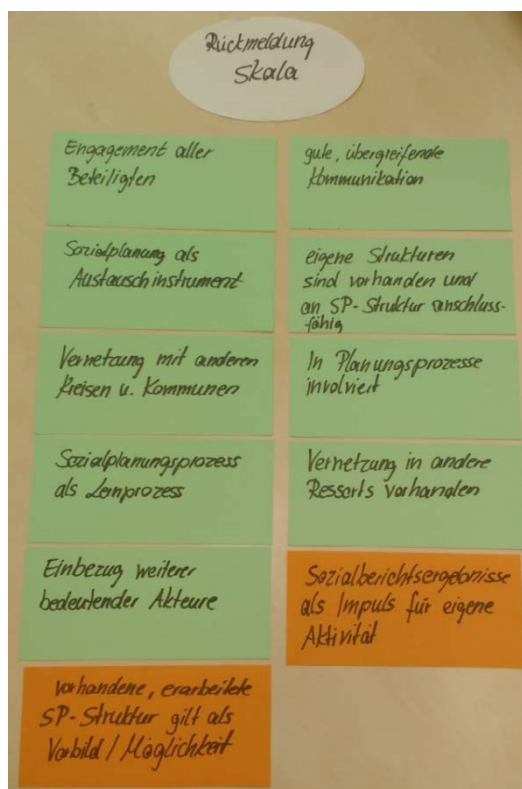 Rückmeldung
Skala
Engagement aller
Beteiligten
Sozialplanung als
Austauschinstrument
Vernetzung mit anderen
Kreisen u. Kommunen
Sozialplanungsprozess
als Lernprozess
Einbezug weiterer
bedeutender Akteure
vorhandene, erarbeitete
SP-Struktur gilt als
Vorbild / Möglichkeit
gute, übergreifende
Kommunikation
eigene Strukturen
sind vorhanden und
an SP-Struktur anschluss-
fähig
In Planungsprozesse
involviert
Vernetzung in andere
Ressorts vorhanden
Sozialberichtsergebnisse
als Impuls für eigene
Aktivität